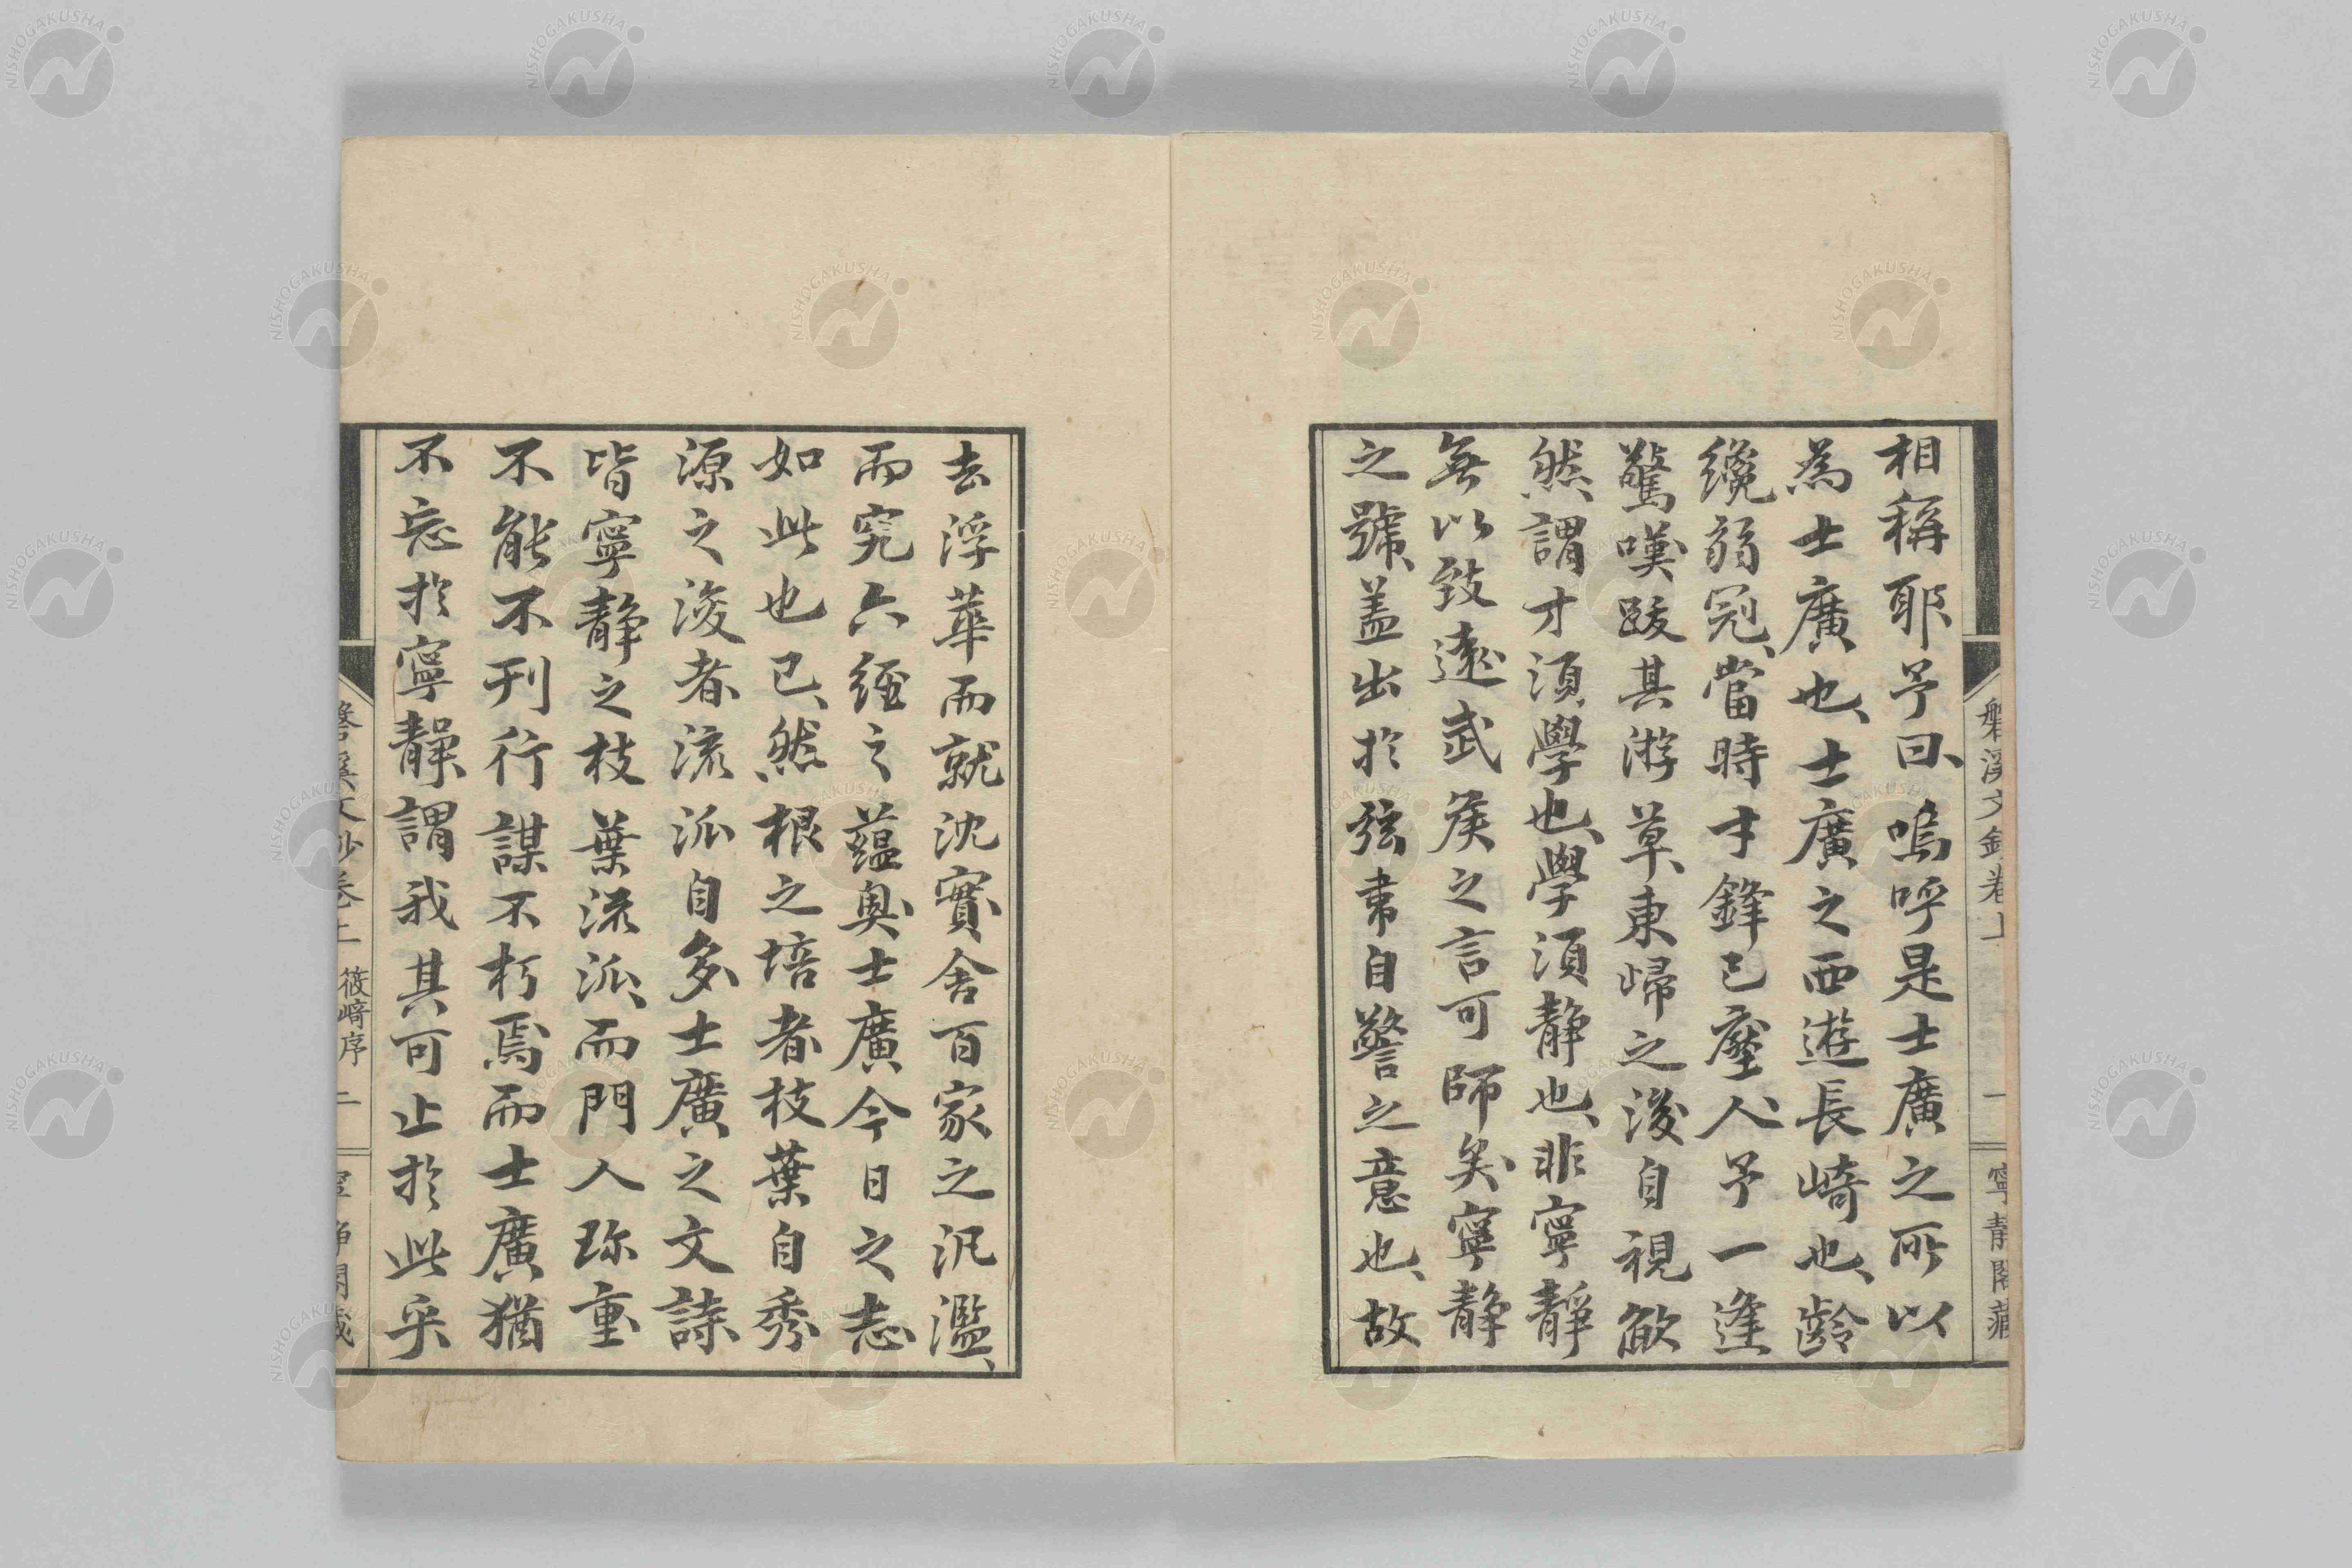 相稱耶予曰嗚呼是士廣之所以
為士廣也士廣之西遊長崎也齡
纔弱冠當時才鋒已壓人予一逢
驚嘆跋其游草東歸之後自視欿
然謂才須學也學須靜也非寧靜
無以致遠武侯之言可師矣寧静
之號盖出於弦韋自警之意也故
去浮華而就沈實舍百家之汎濫
而究六經之蘊奥士廣今日之志
如此也已然根之培者枝葉自秀
源之浚者流派自多士廣之文詩
皆寧静之枝葉流派而門人珎重
不能不刊行謀不朽焉而士廣猶
不忘於寧靜謂我其可止於此乎
磐溪文鈔卷上 一 寧静閣藏
磐溪文鈔卷上 筱﨑序 二 寧静閣藏
NISHOGAKUSHA